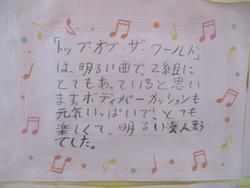 「トップオブ・ザ・ワールド」
は、明るい曲で2組に
とてもあっていると思い
ます。ボディパーカッションも
元気いっぱいで、とても
楽しくて、明るい
でした。